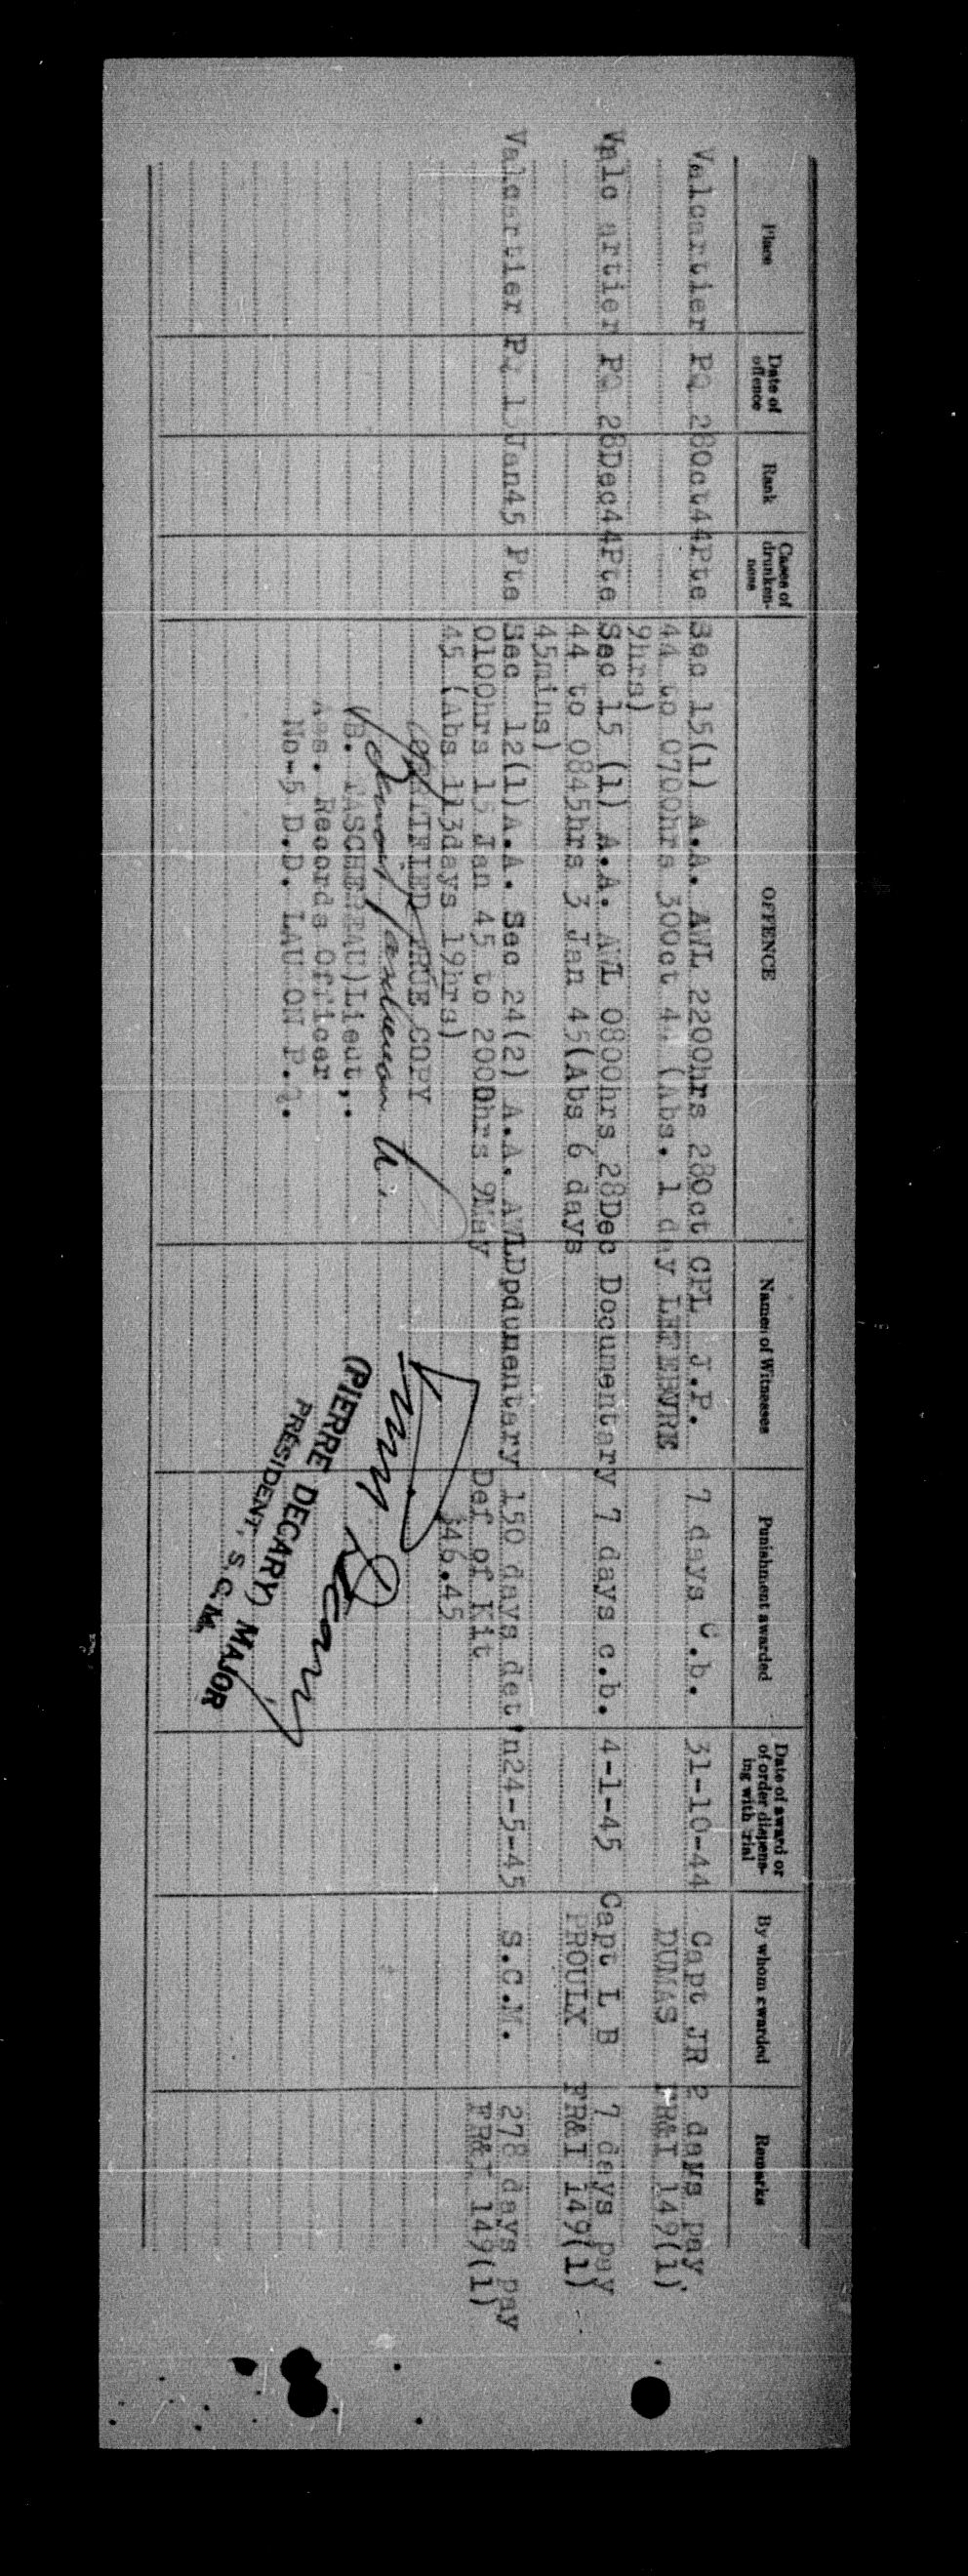 Place Date of offence Rank Cases of drunken-ness OFFENCE Names of Witnesses Punishment awarded Date of award or of order dispens-ing with trial By whom awarded Remarks
Valcartier PQ 28Oct44 Pte Sec 15(1) A.A. AWL 2200hrs 28Oct CPL J.P. 7 days c.b. 31-10-44 Capt JR 2 days pay
44 to 0700hrs 30Oct 44 (Abs. 1 day LEFEBVRE DUMAS FR&I 149(1)
9hrs)
Valc artier PQ 28Dec44Pte Sec 15 (1) A.A. AWL 0800hrs 28Dec Documentary 7 days c.b. 4-1-45 Capt L B 7 days pay
44 to 0845hrs 3 Jan 45(Abs 6 days PROULX FR&I 149(1)
45mins)
Valcartier PQ 15Jan45 Pte Sec 12(1)A.A. Sec 24(2) A.A. AWLDpdumentary 150 days det'n24-5-45 S.C.M. 278 days pay
0100hrs 15 Jan 45 to 2000hrs 9May Def of Kit FR&I 149(1)
45 (Abs 113days 19hrs) $46.45
CERTIFIED TRUE COPY
(B. TASCHEREAU)Lieut,.
Ass. Records Officer
No-5 D.D. LAUZON P.Q.
Pierre Decary
(PIERRE DECARY) MAJOR
PRESIDENT, S.C.M.